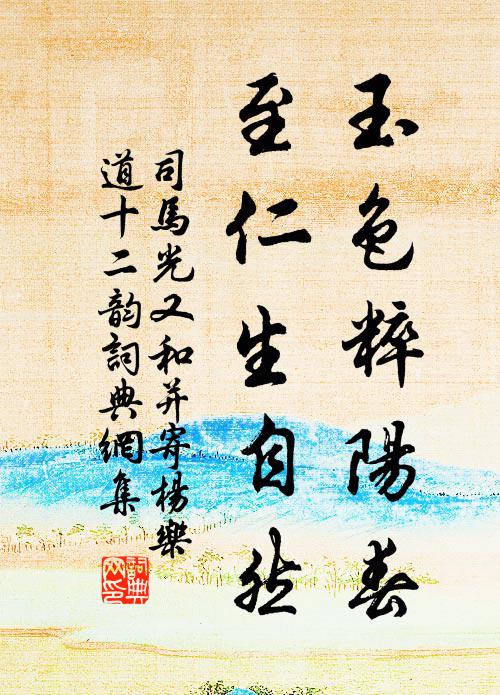 玉色粹陽春
至仁生自然
司馬光又和并寄楊樂
道十二韵詞典網集
詞典網印